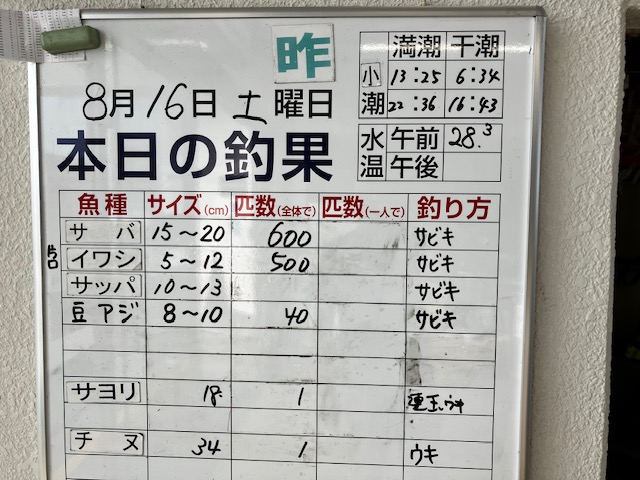 昨
8月16日土曜日
本日の釣果
満潮 干潮
小潮 13:25 6:34
22:36 16:43
水温 午前 28.3
午後
魚種 サイズ(cm) 匹数(全体で) 匹数(一人で) 釣り方
サバ 15〜20 600 サビキ
片口 イワシ 5〜12 500 サビキ
サッパ 10〜13 サビキ
豆アジ 8〜10 40 サビキ
サヨリ 18 1 連玉ウキ
チヌ 34 1 ウキ